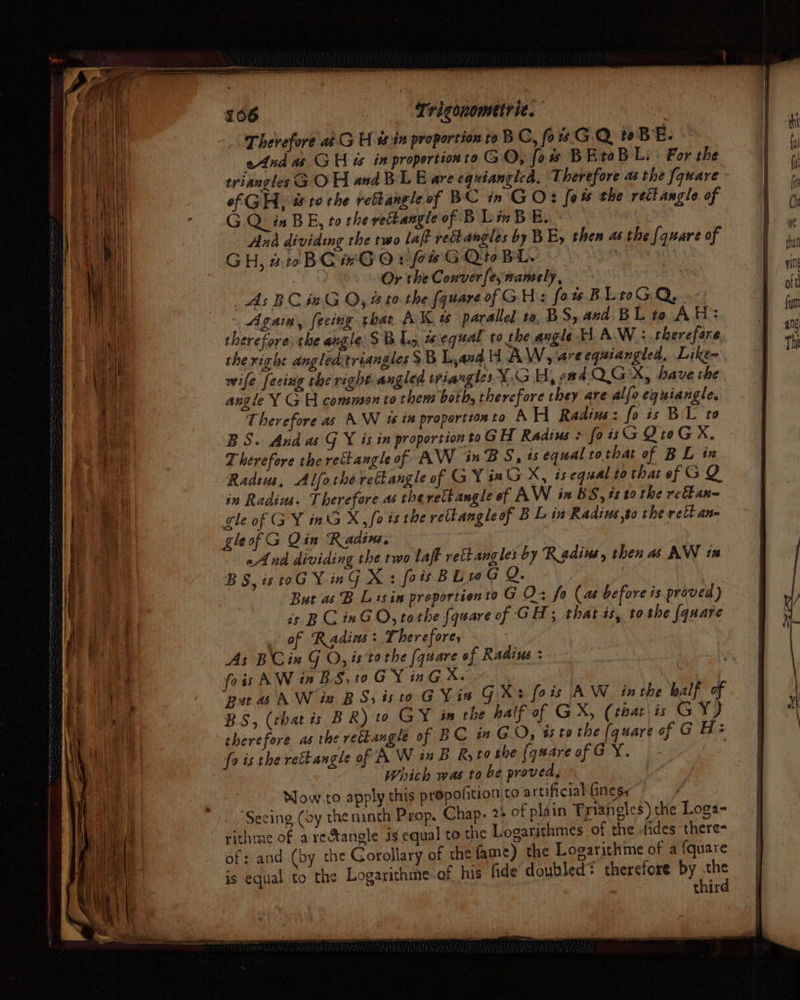 106 Trigonometrie.
Therefore as G H is in proportion to B C, so is G Q to B E.
And as G H is in proportion to G O, so is B E to B L: For the
triangles G O H and B L E are equiangled. Therefore as the square
of G H, is to the rectangle of B C in G O: so is the rectangle of
G Q in B E, to the rectangle of B L in B E.
And dividing the two last rectangles by B E, then as the square of
G H, is to B C in G O: so is G Q to B L.
Or the Converse, namely,
As B C in G O, is to the square of G H: so is B L to G Q.
Again, seeing that A K is parallel to B S, and B L to A H:
therefore the angle S B L, is equal to the angle H A W: therefore
the right angled triangles S B L, and H A W, are equiangled. Like-
wise seeing the right angled triangles Y G H, and Q G X, have the
angle Y G H common to them both, therefore they are also equiangle.
Therefore as A W is in proportion to A H Radius: so is B L to
B S. And as G Y is in proportion to G H Radius: so is G Q to G X.
Therefore the rectangle of A W in B S, is equal to that of B L in
Radius, Also the rectangle of G Y in G X, is equal to that of G Q
in Radius. Therefore as the rectangle of A W in B S, is to the rectan-
gle of G Y in G X, so is the rectangle of B L in Radius, to the rectan-
gle of G Q in Radius.
And dividing the two last rectangles by Radius, then as A W in
B S, is to G Y in G X: so is B L to G Q.
But as B L is in proportion to G Q: so (as before is proved)
is B C in G O, to the square of G H; that is, to the square
of Radius: Therefore,
As B C in G O, is to the square of Radius:
so is A W in B S, to G Y in G X.
But as A W in B S, is to G Y in G X: so is A W in the half of
B S, (that is B R) to G Y in the half of G X, (that is G Y)
therefore as the rectangle of B C in G O, is to the square of G H:
so is the rectangle of A W in B R, to the square of G Y.
Which was to be proved.
Now to apply this proposition to artificial sines.
Seeing (by the ninth Prop. Chap. 2. of plain Triangles) the Loga-
rithme of a rectangle is equal to the Logarithmes of the sides there-
of: and (by the Corollary of the same) the Logarithme of a square
is equal to the Logarithme of his side doubled: therefore by the
third